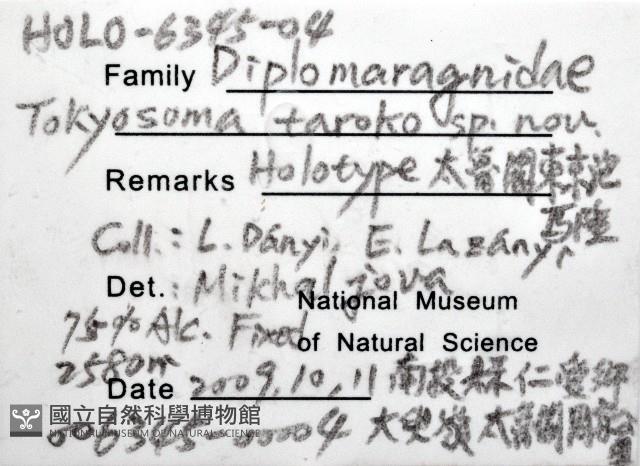 HOLO-6345-04
Family Diplomaragnidae
Tokyosoma taroko sp. nov.
Remarks Holotype 太魯閣東東池
馬陸
Coll.: L. Dányi, E. Lazányi
Det.: Mikhaljova
National Museum
75% Alc. Fixed
of Natural Science
2580m
Date 2009.10.11 南投縣仁愛鄉
國立自然科學博物館
NATIONAL MUSEUM OF NATURAL SCIENCE
006345-00004 大史嶺 太魯閣